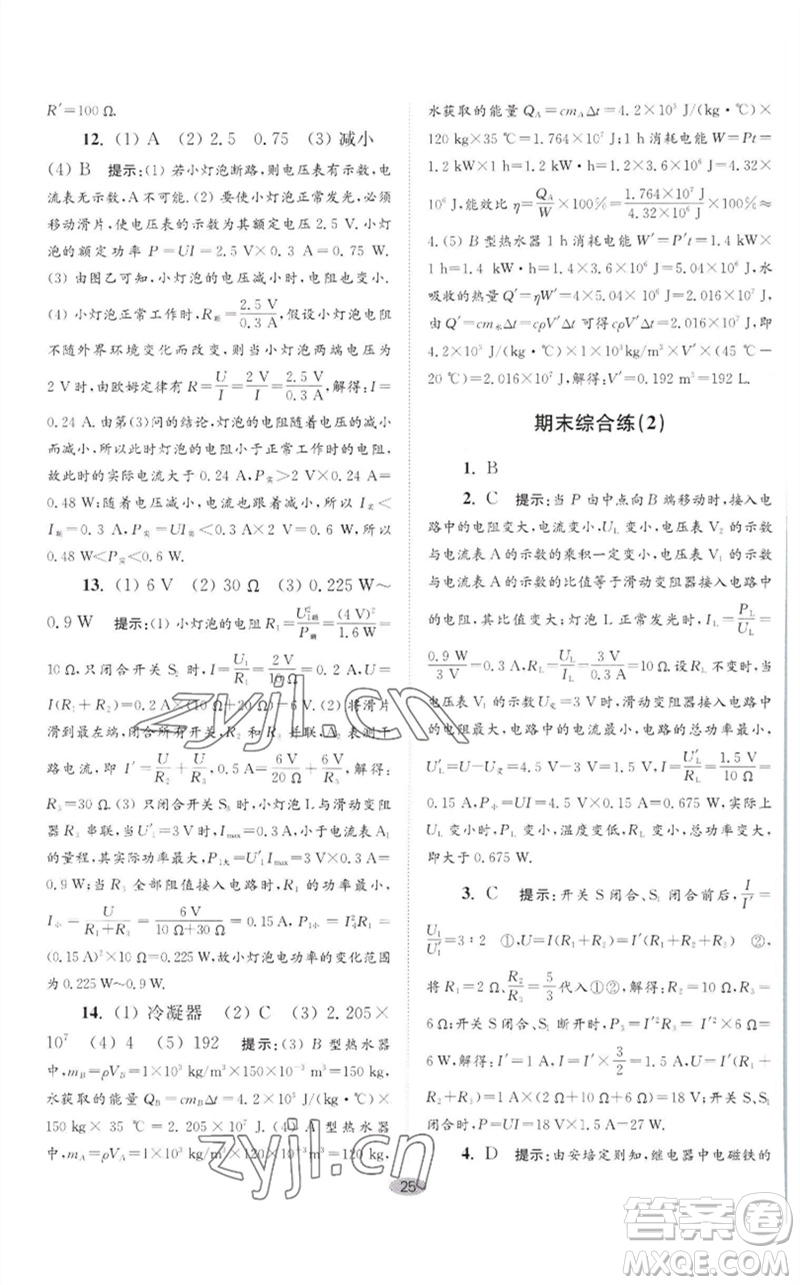 R′=100 Ω.
12. (1) A (2) 2.5 0.75 (3) 减小
(4) B 提示:(1) 若小灯泡断路,则电压表有示数,电
流表无示数,A不可能.(2) 要使小灯泡正常发光,必须
移动滑片,使电压表的示数为其额定电压 2.5 V.小灯
泡的额定功率 P=UI=2.5 V×0.3 A=0.75 W.
(3) 由图乙可知,小灯泡的电压减小时,电阻减小.
(4) 小灯泡正常工作时,R额=2.5 V/0.3 A,假设小灯泡电阻
不随外界环境变化而改变,则当小灯泡两端电压为
2 V时,由欧姆定律有 R=U/I=2 V/I=2.5 V/0.3 A,解得:I=
0.24 A.由第(3)问的结论,灯泡的电阻随着电压的减小
而减小,所以小灯泡的电阻小于正常工作时的电阻,故
此时的实际电流大于 0.24 A,P实>2 V×0.24 A=
0.48 W;随着电压的减小,电流也会减小,所以 I实<
I额=0.3 A,P实=UI实<2 V×0.3 A=0.6 W,所以
0.48 W<P实<0.6 W.
13. (1) 6 V (2) 30 Ω (3) 0.225 W~
0.9 W 提示:(1) 小灯泡的电阻 R₁=U²额/P额=(4 V)²/1.6 W=
10 Ω,只闭合开关 S₂时,I=U₁/R₁=2 V/10 Ω=0.2 A,U=
I(R₁+R₂)=0.2 A×(10 Ω+20 Ω)=6 V.(2) 将滑片
滑到最左端,闭合所有开关,R₂和 R₃并联,A表测干
路电流,即 I′=U/R₂+U/R₃,0.5 A=6 V/20 Ω+6 V/R₃,解得:
R₃=30 Ω.(3) 只闭合开关 S₁时,小灯泡 L 与滑动变阻
器 R₃串联,当 U′₁=3 V时,Imax=0.3 A,小于电流表 A₁
的量程,其最大功率 P₁大=U′₁Imax=3 V×0.3 A=
0.9 W;当 R₃全部阻值接入电路时,小灯泡功率最小,
I小=U/(R₁+R₃)=6 V/(10 Ω+30 Ω)=0.15 A,P₁小=I²小R₁=
(0.15 A)²×10 Ω=0.225 W,故小灯泡电功率的变化范围
为 0.225 W~0.9 W.
14. (1) 冷凝器 (2) C (3) 2.205×
10⁷ (4) 4 (5) 192 提示:(3) B型热水器
中,m_B=ρV_B=1×10³ kg/m³×150×10⁻³ m³=150 kg,
水获取的能量 Q_B=cm_BΔt=4.2×10³ J/(kg·℃)×
150 kg×35 ℃=2.205×10⁷ J.(4) A型热水器
中,m_A=ρV_A=1×10³ kg/m³×120×10⁻³ m³=120 kg,
水获取的能量 Q_A=cm_AΔt=4.2×10³ J/(kg·℃)×
120 kg×35 ℃=1.764×10⁷ J,消耗电能 W=Pt=
1.2 kW×1 h=1.2×3.6×10⁶ J=4.32×
10⁶ J,能效比 η=Q_A/W×100%=1.764×10⁷ J/4.32×10⁶ J×100%≈
4.(5) B型热水器 1 h消耗电能 W′=P′t=1.4 kW×
1 h=1.4×3.6×10⁶ J=5.04×10⁶ J,水
吸收的热量 Q′=ηW′=4×5.04×10⁶ J=2.016×10⁷ J,
由 Q′=cm水Δt=cρV′Δt可得cρV′Δt=2.016×10⁷ J,即
4.2×10³ J/(kg·℃)×1×10³kg/m³×V′×(45 ℃−
20 ℃)=2.016×10⁷ J,解得:V′=0.192 m³=192 L.
期末综合练(2)
1. B
2. C 提示:当 P 由中点向 B 端移动时,接入电
路中的电阻变大,电流变小,U_L变小,电压表 V₂的示数
与电流表 A 的示数的乘积一定变小,电压表 V₁的示数
与电流表 A 的示数的比值等于滑动变阻器接入电路中
的电阻,其比值变大;灯泡 L 正常发光时,I_L=P_L/U_L=
0.9 W/3 V=0.3 A,R_L=U_L/I_L=3 V/0.3 A=10 Ω.设 R_L不变时,当
电压表 V₁的示数 U变=3 V时,滑动变阻器接入电路中
的电阻最大,电路中的电流最小,电路的总功率最小,
U′_L=U−U变=4.5 V−3 V=1.5 V,I小=U′_L/R_L=1.5 V/10 Ω=
0.15 A,P小=UI小=4.5 V×0.15 A=0.675 W,实际上
电流变小时,P_L变小,温度变低,R_L变小,总功率变大,
即大于 0.675 W.
3. C 提示:开关 S 闭合、S₁闭合前后,I/I′=
U₁/U′₁=3∶2 ①,U=I(R₁+R₂)=I′(R₁+R₂+R₃) ②,
将 R₁=10 Ω、R₂/R₃=5/3代入①②,解得:R₂=10 Ω,R₃=
6 Ω;开关 S 闭合、S₁断开时,P₃=I′²R₃=I′²×6 Ω=
6 W,解得:I′=1 A,I=I′×3/2=1 A×3/2=1.5 A,U=
I′(R₁+R₂+R₃)=1 A×(2 Ω+10 Ω+6 Ω)=18 V;开关 S、S₁
闭合时,P=UI=18 V×1.5 A=27 W.
4. D 提示:由安培定则知,继电器中电磁铁的
25
zyjl.cn
zyjl.cn
答案卷
MXQE.COM